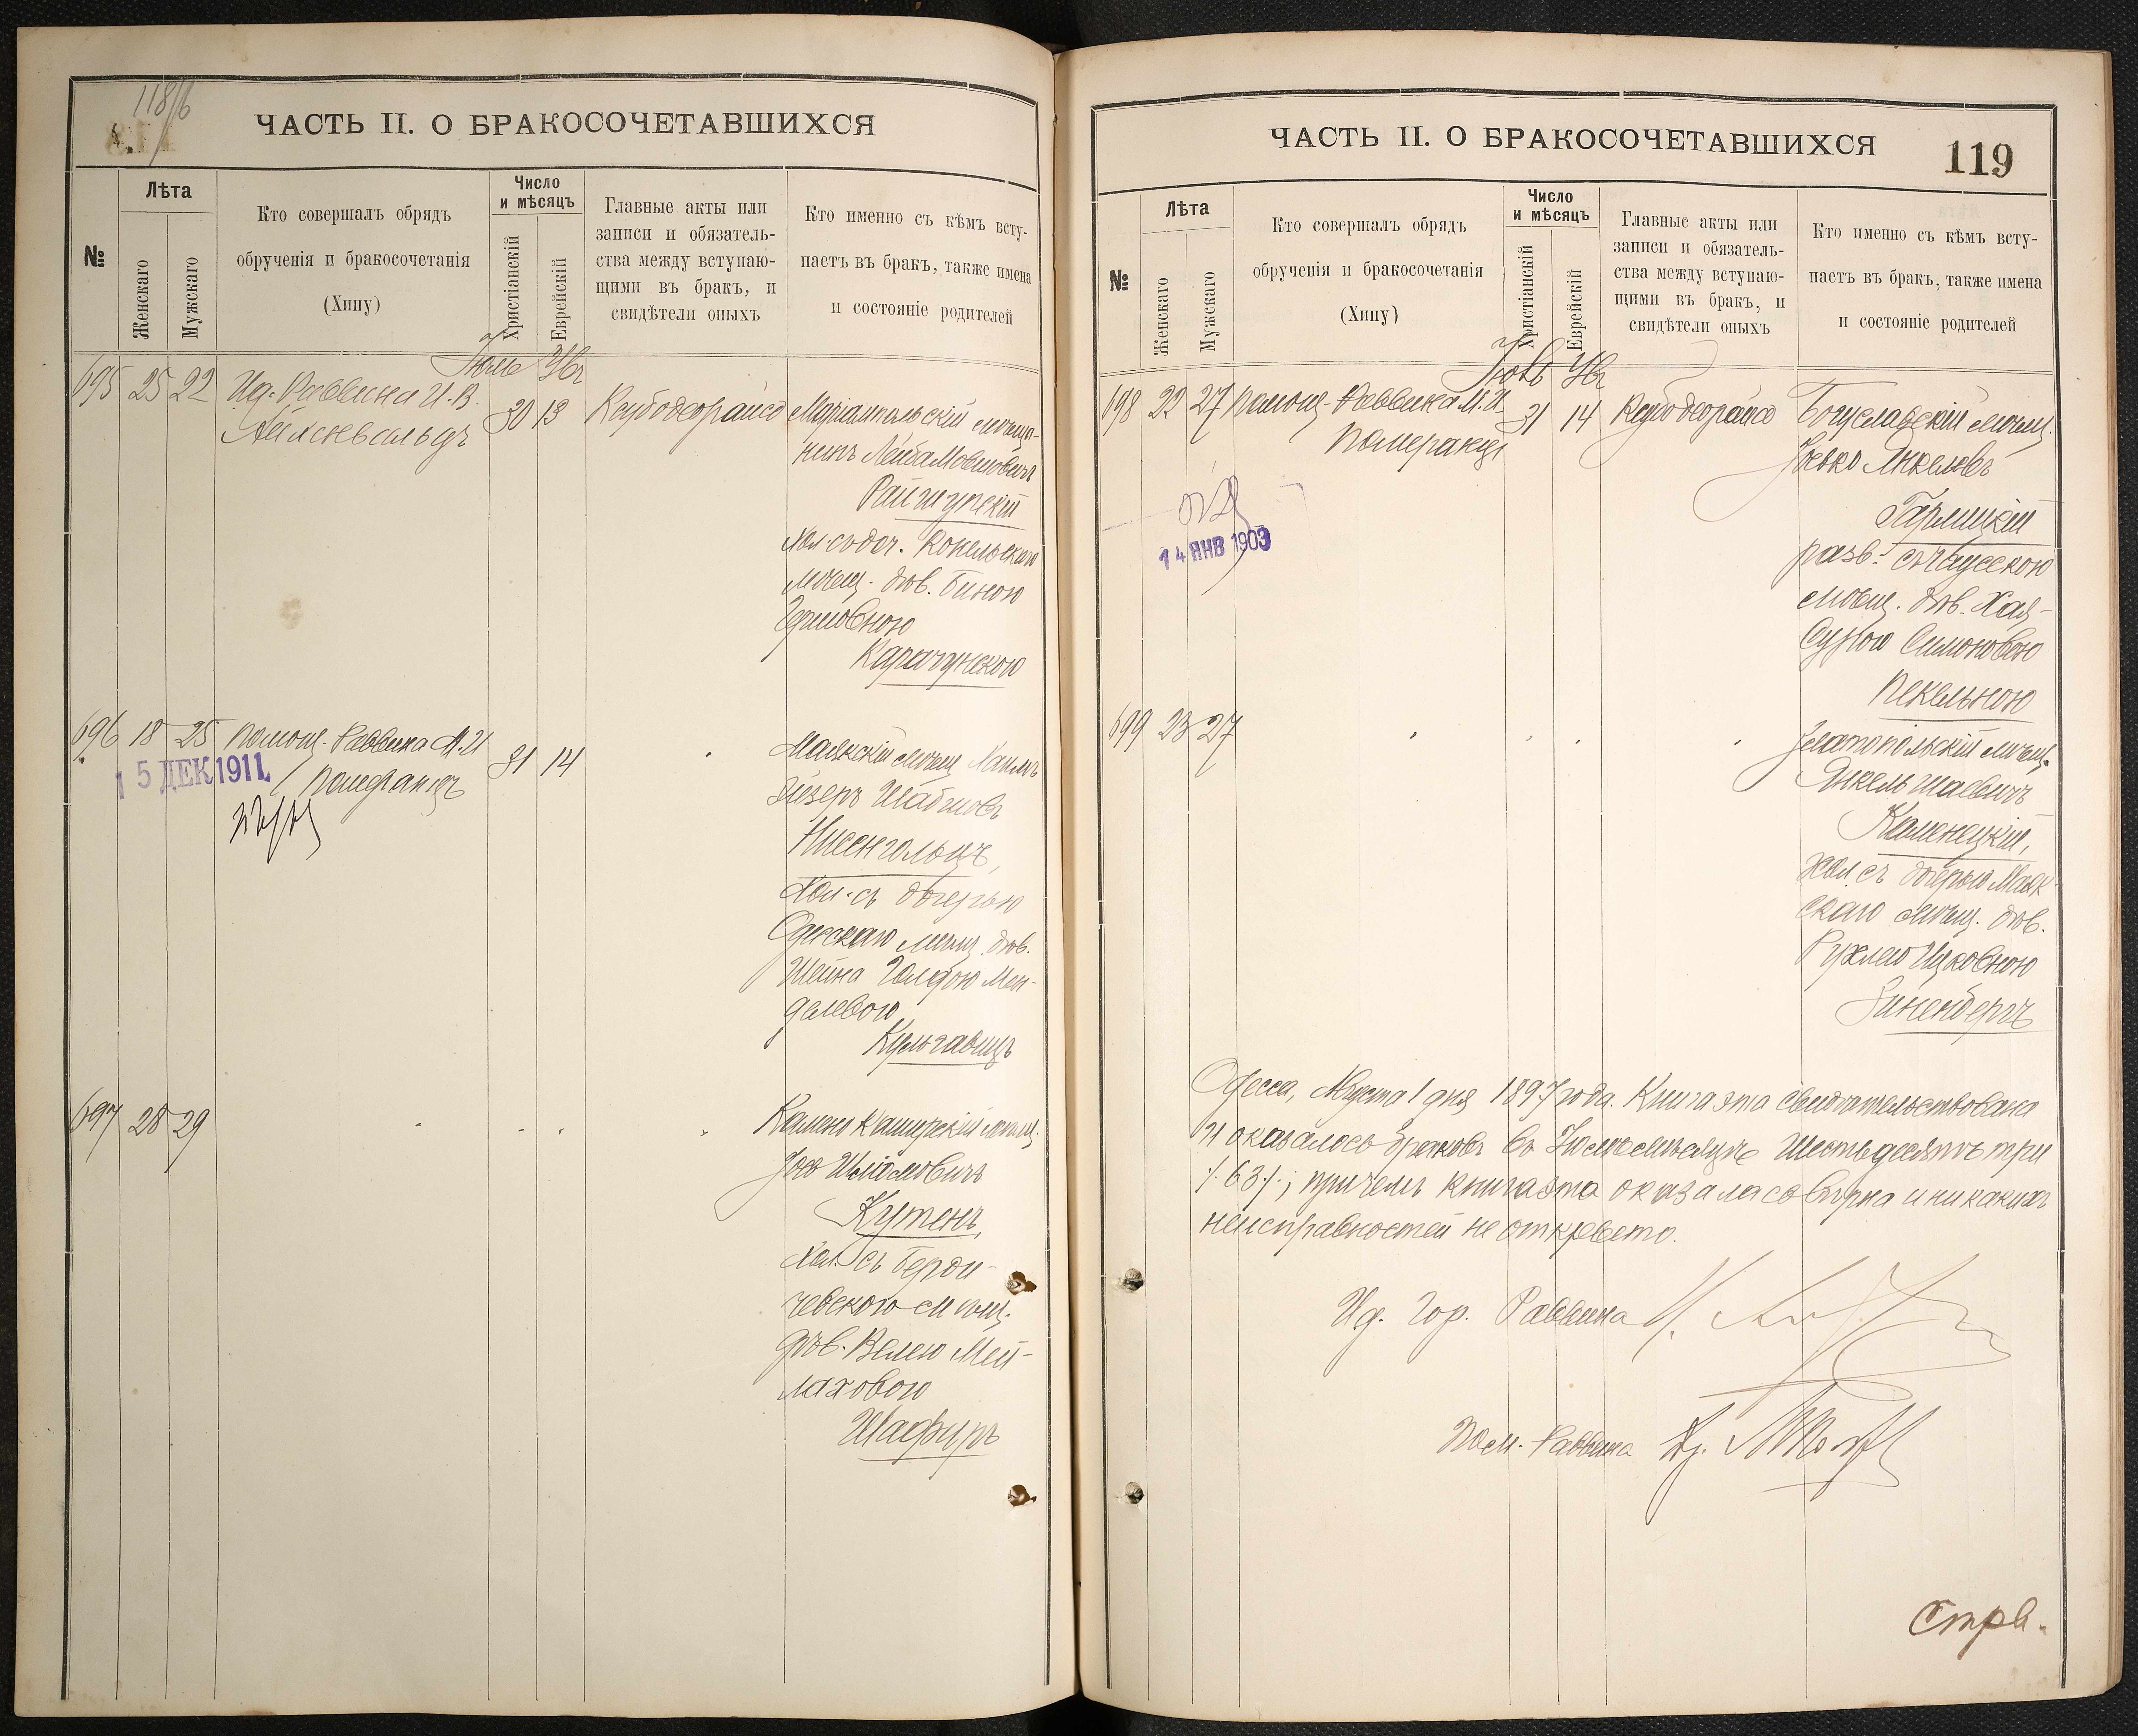 118/б
ЧАСТЬ II. О БРАКОСОЧЕТАВШИХСЯ
№
Лѣта
Женскаго
Мужскаго
Кто совершалъ обрядъ
обрученія и бракосочетанія
(Хипу)
Число
и мѣсяцъ
Христіанскій
Еврейскій
Главные акты или
записи и обязатель-
ства между вступаю-
щими въ бракъ, и
свидѣтели оныхъ
Кто именно съ кѣмъ всту-
паетъ въ бракъ, также имена
и состояніе родителей
Іюль
695 25 22 Ид. Раввина И. В.
30 13
Маріампольскій мѣща-
нинъ Лейба Мовшовичъ
Райгурскій
хол. с дочг. Копельскаго
мѣщ. дѣв. Биною
Гершовною
Карачунскою
696 18 25 Помощ. Раввина М. И.
Померанцъ
31 14
15 ДЕК 1911
Маякскій мѣщ. Хаимъ
Эйзеръ
Нисенгольцъ,
Хол. съ дочерью
Одесскаго мѣщ. дѣв.
Шейна Голдою Мен-
делевою
Кульгавицъ
697 28 29
Камено Каширскій мѣщ.
Кутенъ,
Хол. съ Берди-
чевскою мѣщ.
дѣв. Велею Мей-
лаховою
Шафиръ
ЧАСТЬ II. О БРАКОСОЧЕТАВШИХСЯ
119
№
Лѣта
Женскаго
Мужскаго
Кто совершалъ обрядъ
обрученія и бракосочетанія
(Хипу)
Число
и мѣсяцъ
Христіанскій
Еврейскій
Главные акты или
записи и обязатель-
ства между вступаю-
щими въ бракъ, и
свидѣтели оныхъ
Кто именно съ кѣмъ всту-
паетъ въ бракъ, также имена
и состояніе родителей
698 22 27 Помощ. Раввина М. И.
Померанцъ
31 14
14 ЯНВ 1903
Богуславскій мѣщ.
Іосько Янкелевъ
Гарлицкій
разв. съ Чаусскою
мѣщ. дѣв. Хая-
Сунею Симоновою
Пекельною
699 23 27
Златопольскій мѣщ.
Янкель Шаевичъ
Каменецкій,
хол. съ дочерью Маяк-
скаго мѣщ. дѣв.
Рухлею Ицковною
Зиненбергъ
Одесса, Августа 1 дня 1897 года. Книга эта свидѣтельствована
и оказалось браковъ въ Іюлѣ мѣсяцѣ Шестьдесятъ три
/.63/.; причемъ книга эта оказалась вѣрна и никакихъ
неисправностей не открыто.
Ид. Гор. Раввина
Пом. Раввина